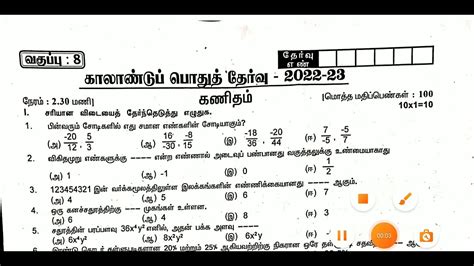 வகுப்பு : 8
தேர்வு எண்
காலாண்டுப் பொதுத் தேர்வு - 2022-23
நேரம் : 2.30 மணி
கணிதம்
மொத்த மதிப்பெண்கள் : 100
I. சரியான விடையைத் தேர்ந்தெடுத்து எழுதுக.
10x1=10
1. பின்வரும் சோடிகளில் எது சமான எண்களின் சோடியாகும்?
(அ) -20/12, 5/3 (ஆ) 16/-30, -8/15 (இ) -18/36, -20/44 (ஈ) 7/-5, -5/7
2. விகிதமுறு எண்களுக்கு ---- என்ற எண்ணால் அடைவுப் பண்பானது வகுத்தலுக்கு உண்மையாகாது
(அ) 1 (ஆ) -1 (இ) 0 (ஈ)
3. 123454321 இன் வர்க்கமூலத்திலுள்ள இலக்கங்களின் எண்ணிக்கையானது ---- ஆகும்.
(அ) 4 (ஆ) 5 (இ) 6 (ஈ) 7
4. ஒரு கனச்சதுரத்திற்கு ---- முகங்கள் உள்ளன.
(அ) 4 (ஆ) 6 (இ) 8
5. சதுரத்தின் பரப்பளவு 36x⁴y² எனில், அதன் பக்க அளவு ------
(அ) 6x⁴y² (ஆ) 8x²y² (இ) 6x²y (ஈ) -6x²y
20% மற்றும் 25% ஆகியவற்றிற்கு நிகரான ஒரே தள்
00:03